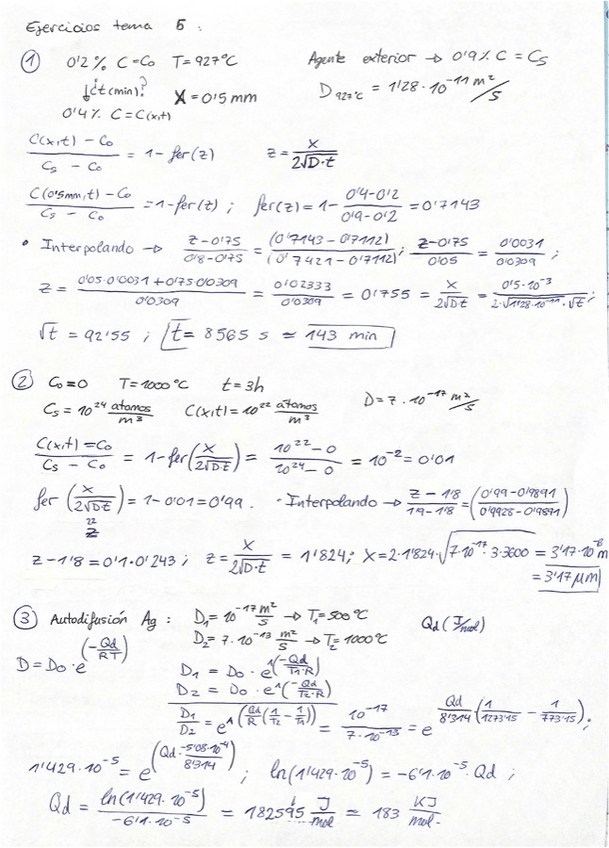 Ejercicios tema 5.
① 0'2 % C = C₀ T = 927ºC Agente exterior → 0'9 % C = Cs
↓ ¿t (min)? X = 0'5 mm D 927ºC = 1'28 · 10⁻¹¹ m²/s
0'4 % C = C(x,t)
C(x,t) - C₀ / Cs - C₀ = 1 - fer(z) z = x / 2√D·t
C(0'5mm,t) - C₀ / Cs - C₀ = 1 - fer(z) ; fer(z) = 1 - 0'4-0'2 / 0'9-0'2 = 0'7143
• Interpolando → z-0'75 / 0'8-0'75 = (0'7143-0'7112) / (0'7421-0'7112) ; z-0'75 / 0'05 = 0'0031 / 0'0309 ;
z = 0'05·0'0031 + 0'75·0'0309 / 0'0309 = 0'02333 / 0'0309 = 0'755 = x / 2√D·t = 0'5·10⁻³ / 2·√1'28·10⁻¹¹·√t ;
√t = 92'55 ; t = 8565 s ≃ 143 min
② C₀ = 0 T = 1000ºC t = 3h D = 7 · 10⁻¹⁷ m²/s
Cs = 10²⁴ átomos/m³ C(x,t) = 10²² átomos/m³
C(x,t) = C₀ / Cs - C₀ = 1 - fer(x / 2√D·t) = 10²² - 0 / 10²⁴ - 0 = 10⁻² = 0'01
fer (x / 2√D·t) = 1 - 0'01 = 0'99. · Interpolando → z - 1'8 / 1'9 - 1'8 = (0'99 - 0'9891 / 0'9928 - 0'9891)
z
z - 1'8 = 0'1 · 0'243 ; z = x / 2√D·t = 1'824 ; X = 2·1'824·√7·10⁻¹⁷·3·3600 = 3'17·10⁻⁶ m
= 3'17 μm
③ Autodifusión Ag : D₁ = 10⁻¹⁷ m²/s → T₁ = 500ºC Qd (J/mol)
D₂ = 7 · 10⁻¹³ m²/s → T₂ = 1000ºC
D = D₀ · e^(-Qd/RT)
D₁ = D₀ · e^(-Qd/T₁·R)
D₂ = D₀ · e^(-Qd/T₂·R)
D₁/D₂ = e^(Qd/R (1/T₂ - 1/T₁)) = 10⁻¹⁷ / 7·10⁻¹³ = e^ Qd/8'314 (1/1273'15 - 1/773'15) ;
1'429·10⁻⁵ = e^(Qd·-5'08·10⁻⁴ / 8'314) ; ln(1'429·10⁻⁵) = -6'1·10⁻⁵·Qd ;
Qd = ln(1'429·10⁻⁵) / -6'1·10⁻⁵ = 182595 J/mol ≃ 183 KJ/mol.